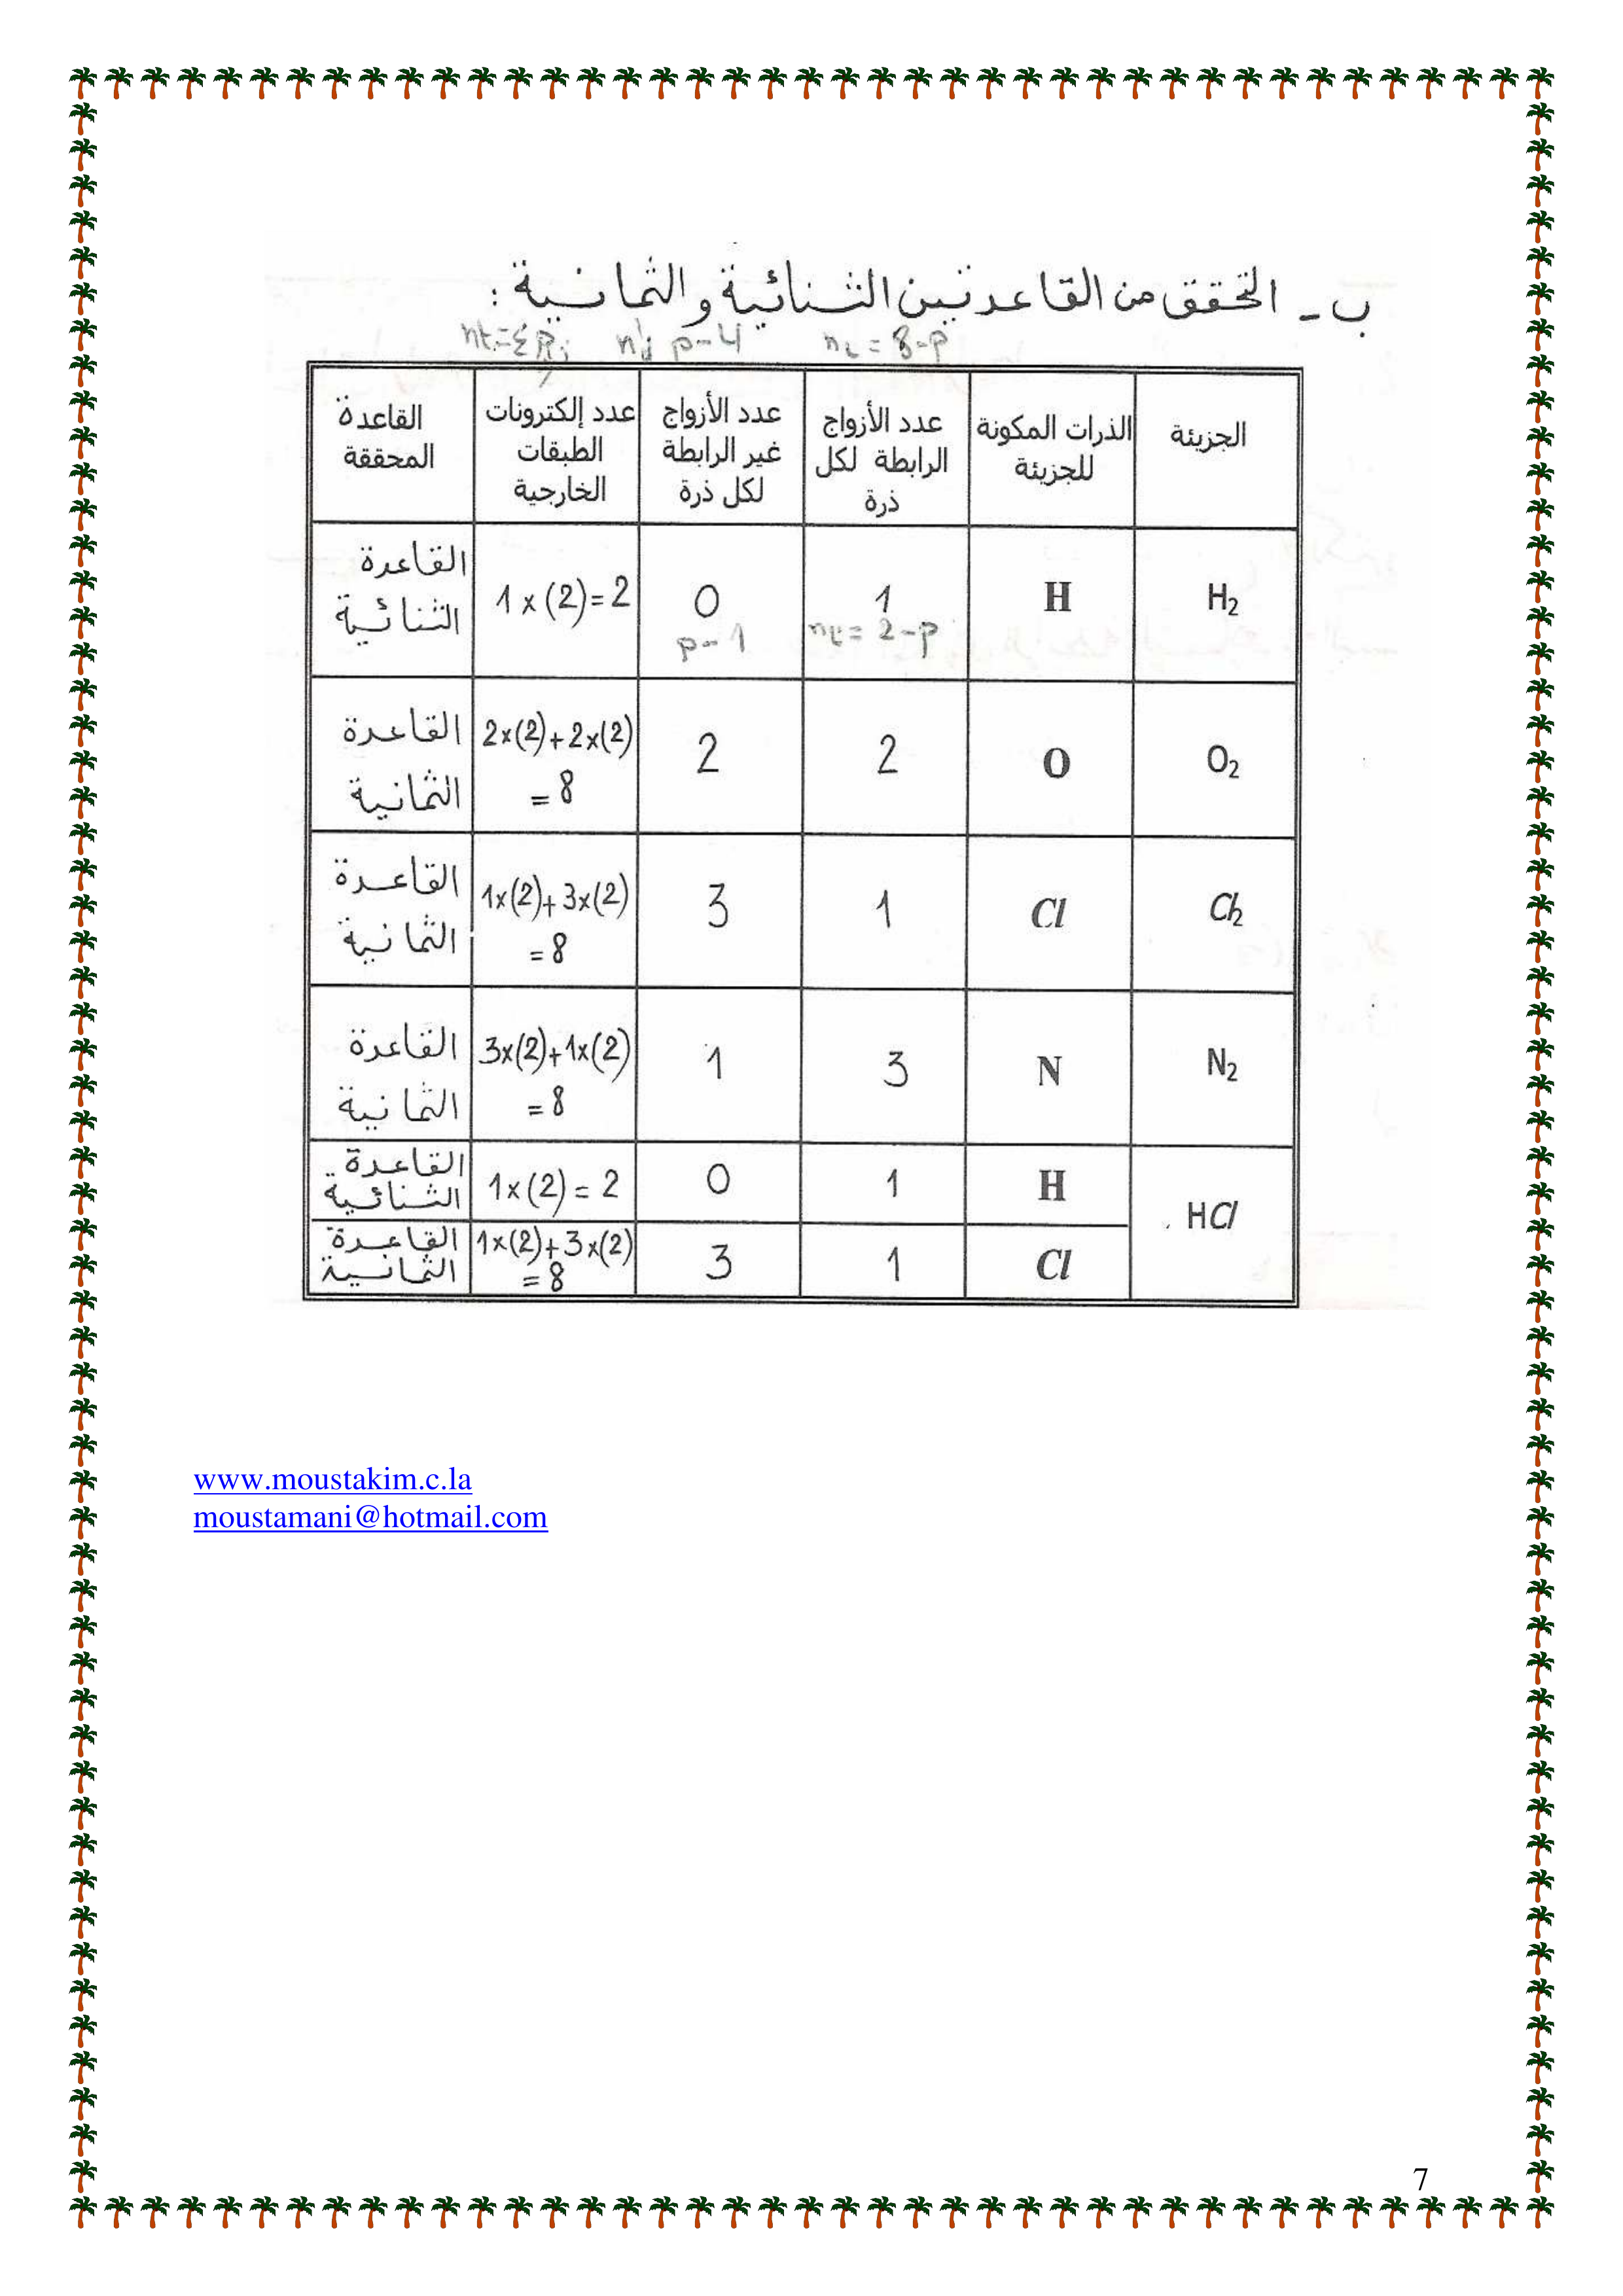 ب - التحقق من القاعدتين الثنائية والثمانية :
p-4 nL = 8-p
الجزيئة
الذرات المكونة
للجزيئة
عدد الأزواج
الرابطة لكل
ذرة
عدد الأزواج
غير الرابطة
لكل ذرة
عدد إلكترونات
الطبقات
الخارجية
القاعدة
المحققة
H2
H
1
= 2-p
0
p-1
1x(2)=2
القاعدة
الثنائية
O2
O
2
2
2x(2)+2x(2)
= 8
القاعدة
الثمانية
Cl2
Cl
1
3
1x(2)+3x(2)
= 8
القاعدة
الثمانية
N2
N
3
1
3x(2)+1x(2)
= 8
القاعدة
الثمانية
HCl
H
1
0
1x(2) = 2
القاعدة
الثنائية
Cl
1
3
1x(2)+3x(2)
= 8
القاعدة
الثمانية
www.moustakim.c.la
moustamani@hotmail.com
7